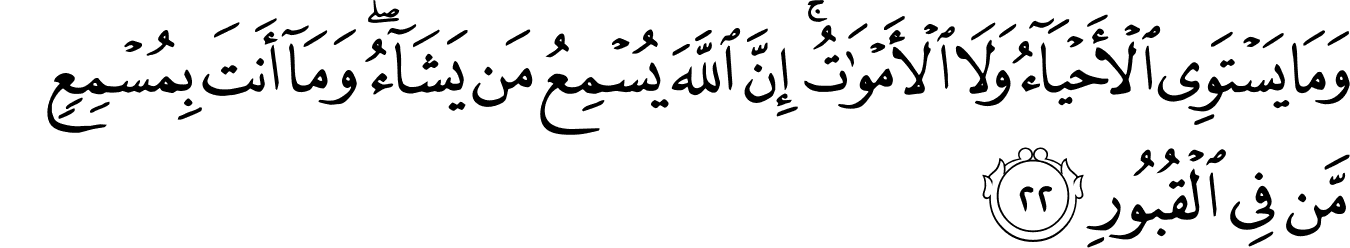 وَمَا يَسْتَوِى ٱلْأَحْيَآءُ وَلَا ٱلْأَمْوَٰتُ ۚ إِنَّ ٱللَّهَ يُسْمِعُ مَن يَشَآءُ ۖ وَمَآ أَنتَ بِمُسْمِعٍ
مَّن فِى ٱلْقُبُورِ ٢٢